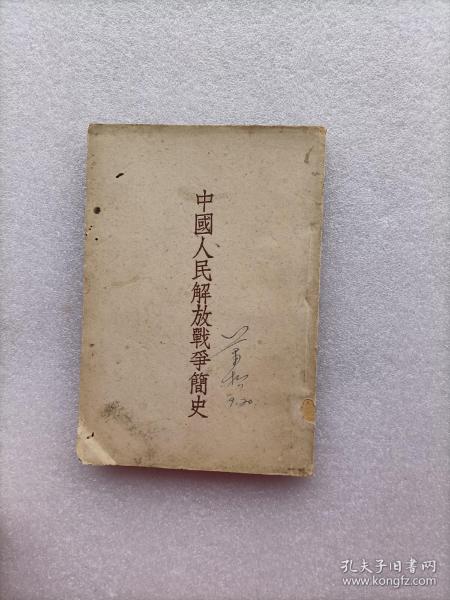 中國人民解放戰爭簡史
9.20.
孔夫子旧书网
www.kongfz.com